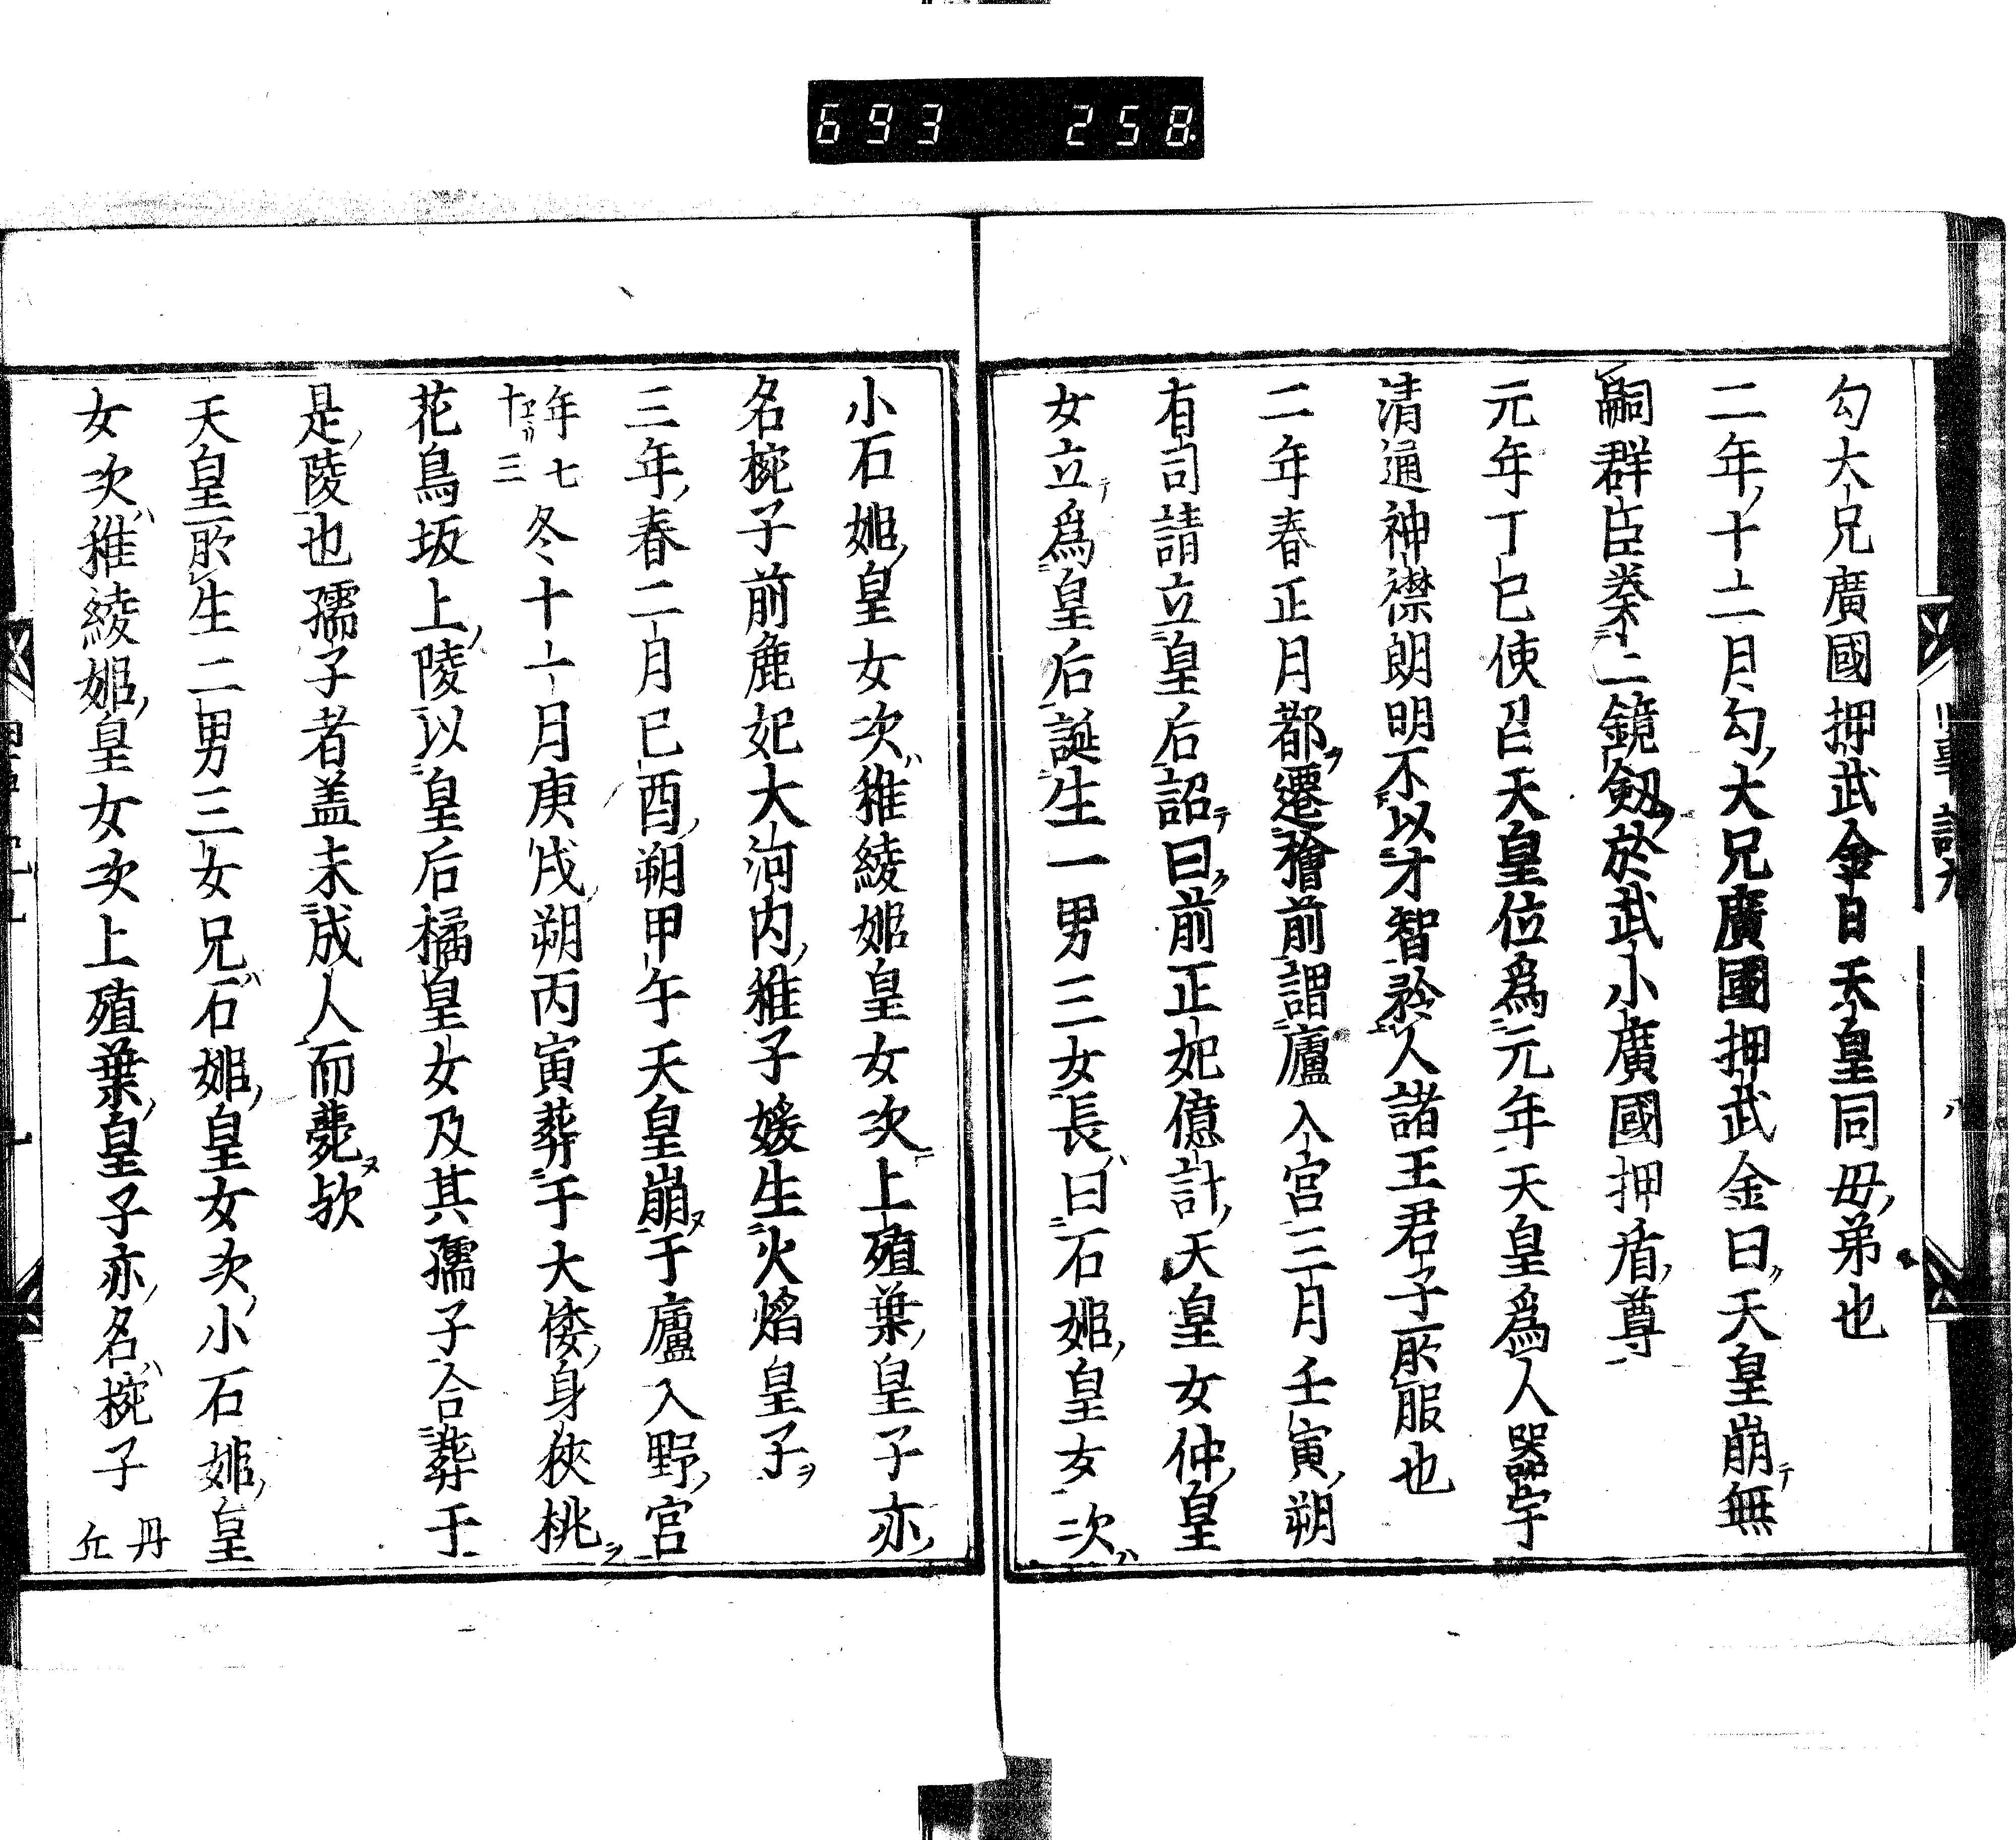 693 258
勾大兄廣國押武金日天皇同毋弟也
二年十二月勾大兄廣國押武金日天皇崩無
嗣群臣奏上鏡劔於武小廣國押盾尊
元年丁巳使召天皇位爲元年天皇爲人器宇
清通神襟朗明不以才智矜人諸王君子所服也
二年春正月都遷檜前謂廬入宮三月壬寅朔
有司請立皇后詔曰前正妃億計天皇女仲皇
女立爲皇后誕生一男三女長曰石姫皇女次
小石姫皇女次稚綾姫皇女次上殖葉皇子亦
名椀子前鹿妃大河内稚子媛生火焰皇子
三年春二月巳酉朔甲午天皇崩于廬入野宮
年七
十三
冬十一月庚戌朔丙寅葬于大倭身狹桃
花鳥坂上陵以皇后橘皇女及其孺子合葬于
是陵也孺子者盖未成人而薨欤
天皇所生二男三女兄石姫皇女次小石姫皇
女次稚綾姫皇女次上殖葉皇子亦名椀子